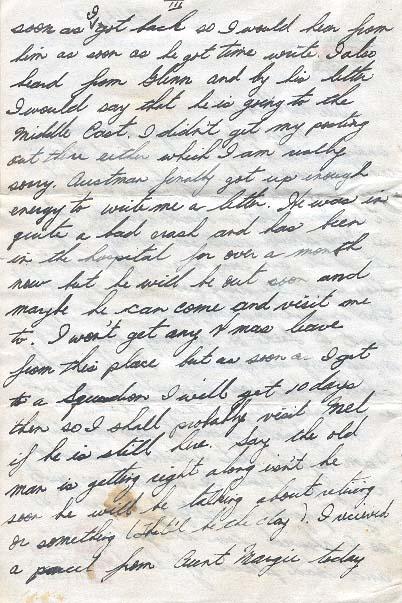 III
soon as I got back so I would hear from
him as soon as he got time write. I also
heard from Glenn and by his letter
I would say that he is going to the
Middle East. I didn't get my posting
out there either which I am really
sorry. Austman finally got up enough
energy to write me a letter. He was in
quite a bad crash and has been
in the hospital for over a month
now but he will be out soon and
maybe he can come and visit me
to. I won't get any Xmas leave
from this place but as soon as I get
to a Squadron I will get 10 days
then so I shall probably visit Mel
if he is still here. Say the old
man is getting right along isn't he
soon he will be talking about retiring
or something (that'l be the day). I recieved
a parcel from Aunt Margie today